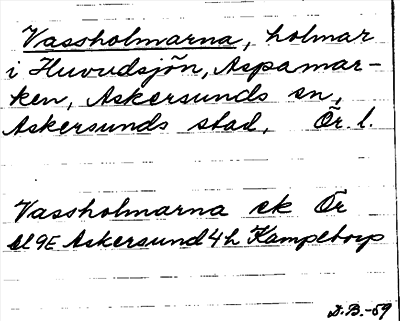 Vassholmarna, holmar
i Huvudsjön, Aspamar-
ken, Askersunds sn,
Askersunds stad, Ör. l.
Vassholmarna ek Ör
9E Askersund 4h Kampetorp
D.B.-59